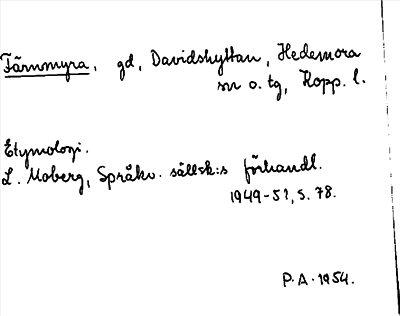 Färnmyra, gd, Davidshyttan, Hedemora
sn o. tg, Kopp. l.
Etymologi.
L. Moberg, Språkv. sällsk:s förhandl.
1949-51, s. 78.
P.A. 1954.